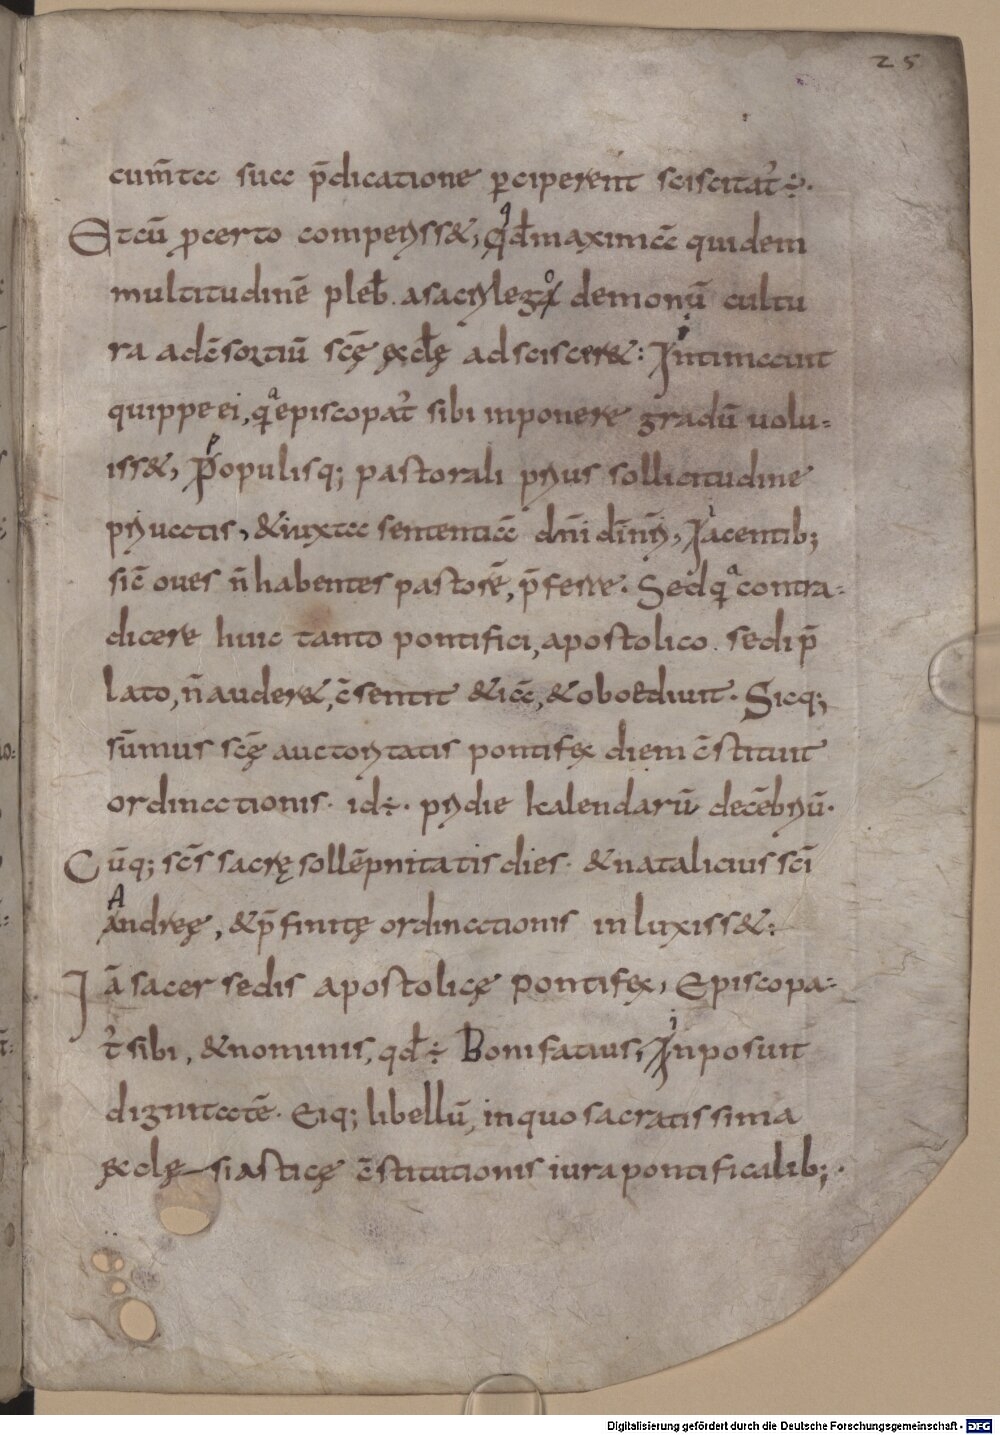 25
cum̄ta sua p̄dicatione ꝑciperent sciscitat᷒ ÷·
Et cū ꝓcerto comperiss&, qd̄ maximā quidem
multitudinē pleb̄. a sacrilega demonū cultu
ra ad c̄sortiū scę̄ ęccl̄ę adsciscer&: Intimauit
quippe ei, qa episcopat᷒ sibi inponere gradū uolu-
iss&, Populisq; pastorali prius sollicitudine
priuatis, & iuxta sententiā dn̄i din̄ri, Iacentib;
sic̄ oues n̄ habentes pastorē, p̄ferre. Sed qa contra-
dicere huic tanto pontifici, apostolico. sedi p̄
lato, n̄ auder&, c̄sentit & iā, & oboediuit. Sicq;
sūmus scę̄ auctoritatis pontifex diem c̄stituit
ordinationis. id÷. pridie kalendarū decēbriū.
Cūq; sc̄s sacrę sollēpnitatis dies. & natalicius sc̄i
A
Andreę, & p̄finitę ordinationis inluxiss&:
Iā sacer sedis apostolicę pontifex, Episcopa-
t᷒ sibi, & nominis, qd̄ ÷ Bonifatius, Inposuit
dignitatē. Eiq; libellū, in quo sacratissima
ęcclę siasticę c̄stitutionis iura pontificalib;.
Digitalisierung gefördert durch die Deutsche Forschungsgemeinschaft - DFG